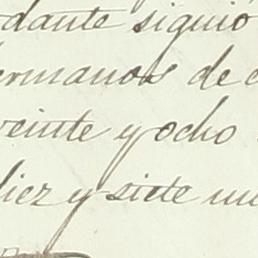 dante siguió
ermanos de c
veinte y ocho
diez y siete mi